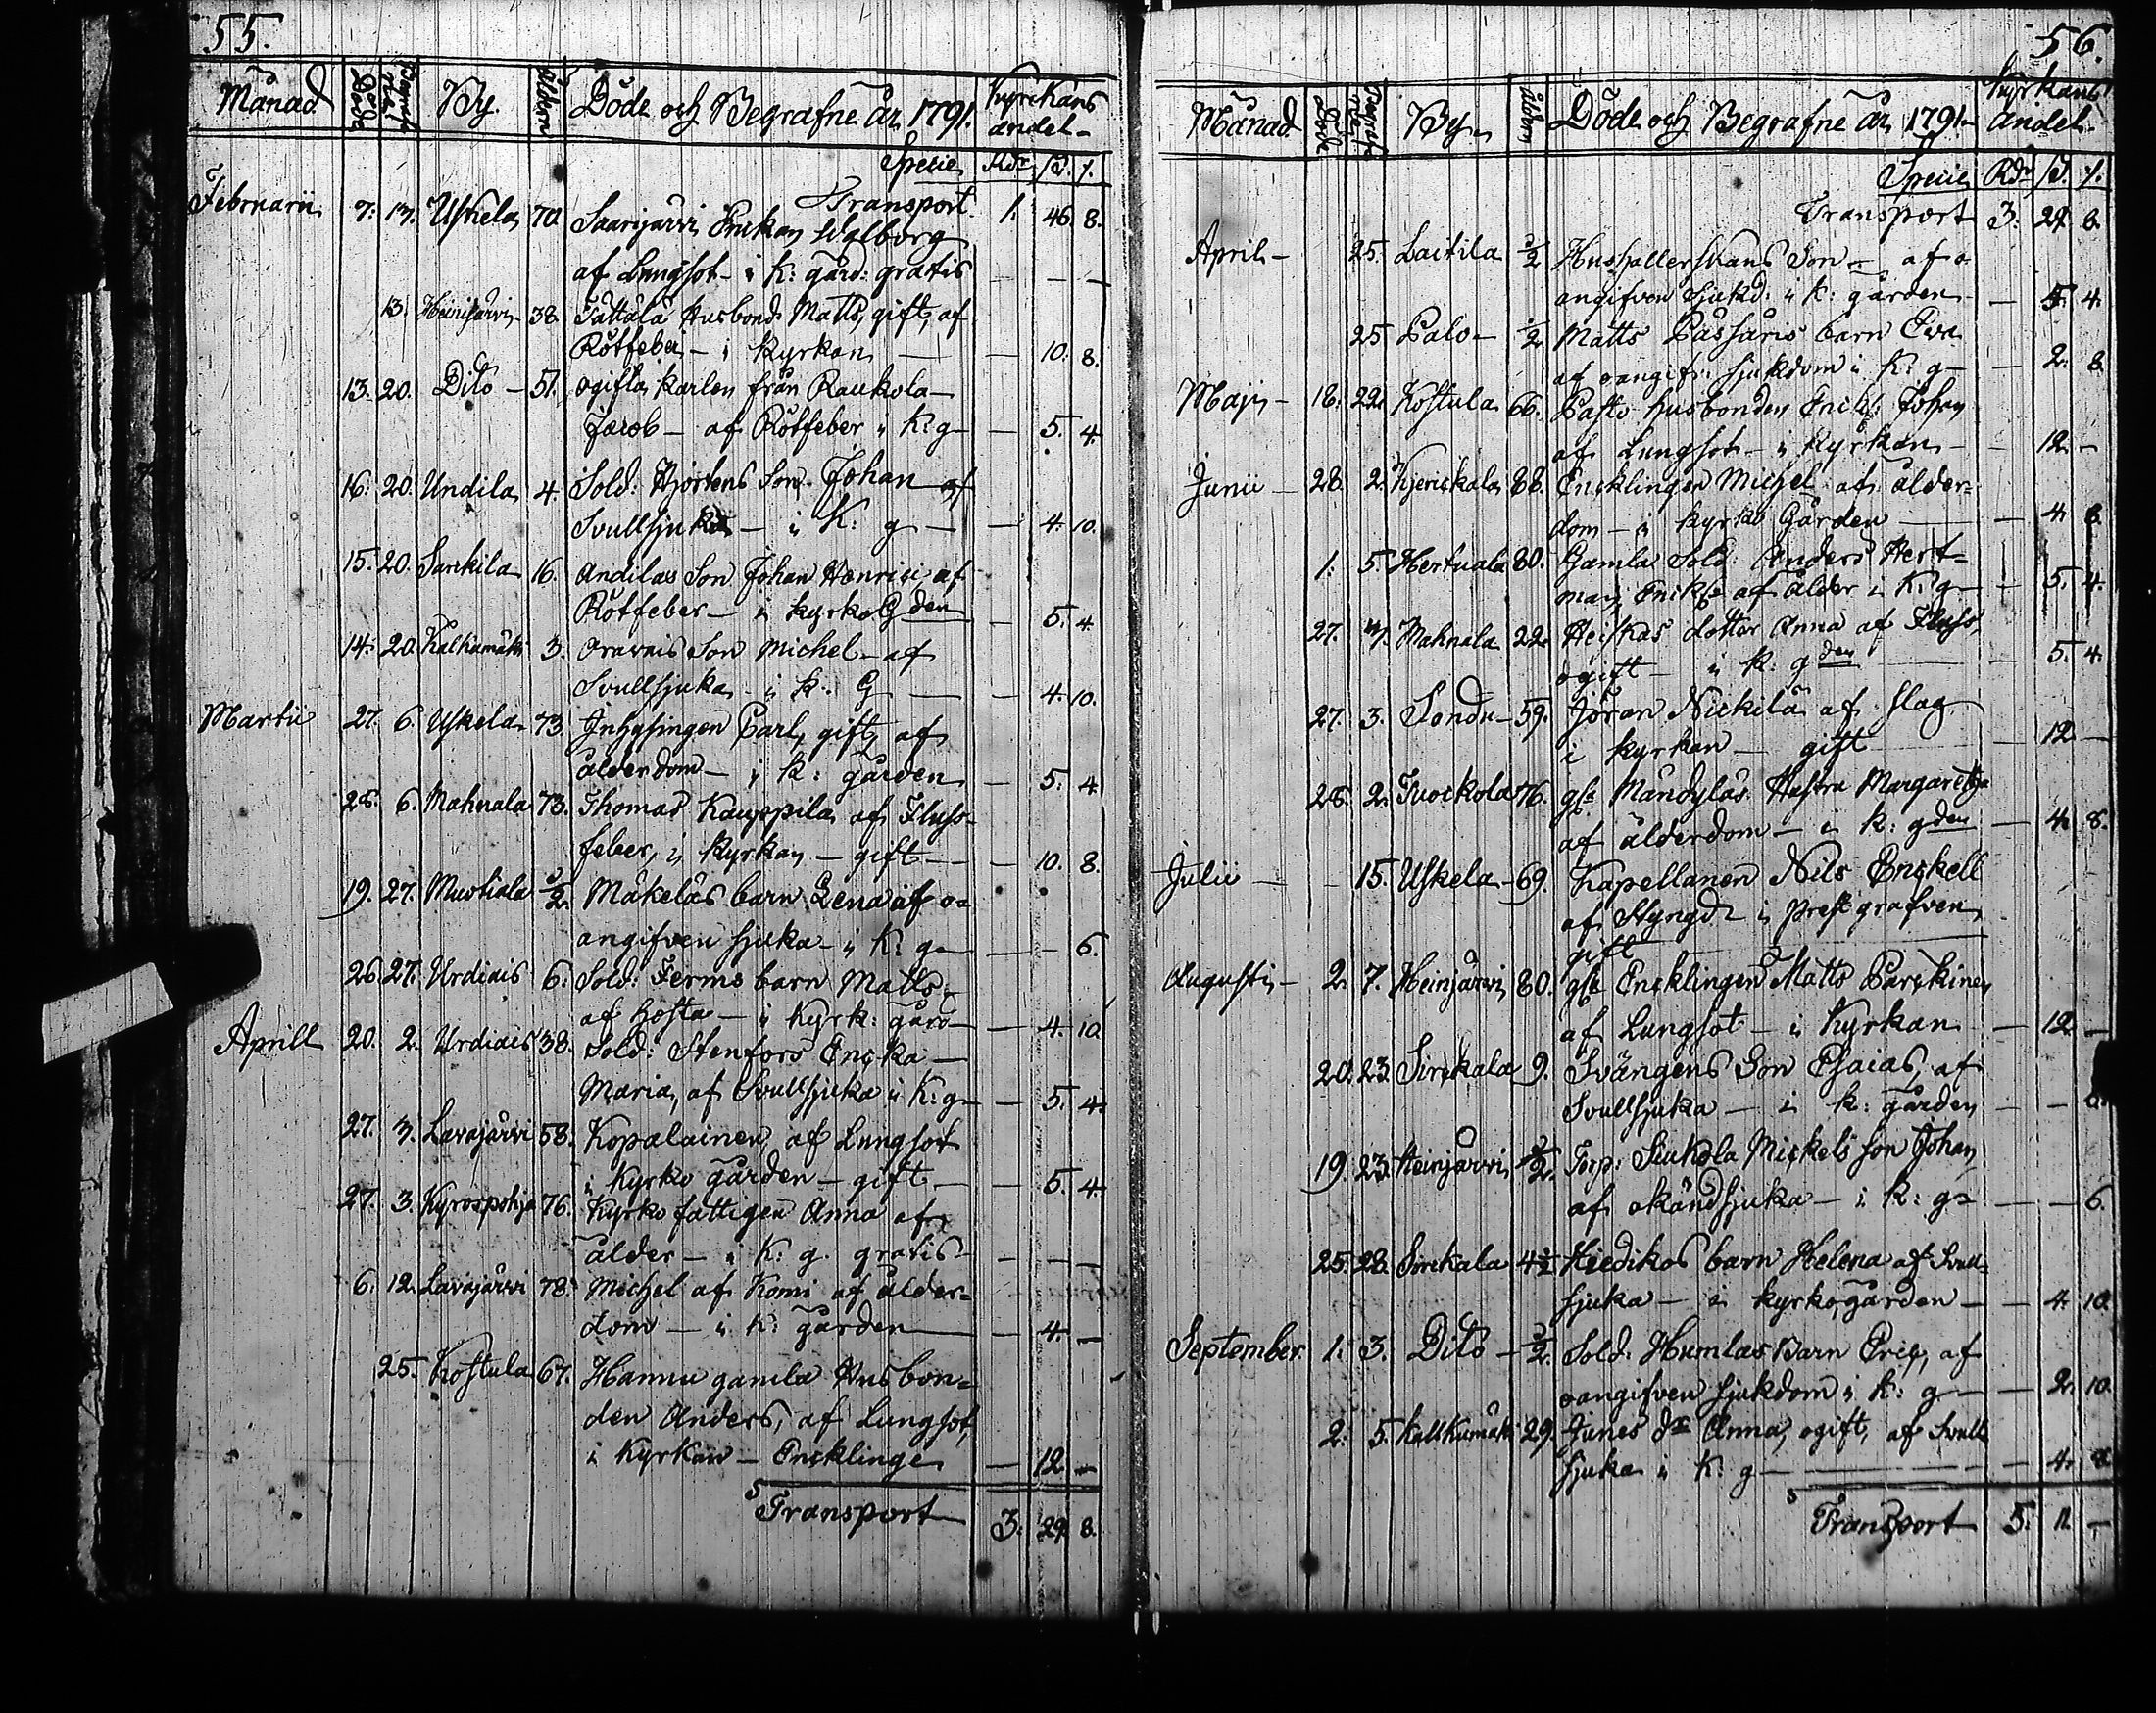 55.
Månad Döde Begrafne By. Åldern Döde och Begrafne år 1791. Kyrckans
andel
Specie Rdr ß. r.
Transport 1. 46. 8.
Februarii 7. 13. Uskela 70. Saarijärvi Enckan Walborg
af Lungsot - i K: gård: gratis - - -
13. Heinijärvi 38. Tattala Husbond Matts, gift, af
Rötfeber - i Kyrkan - 10. 8.
13. 20. Dito - 51. ogifta karlen från Raukola
Jacob - af Rötfeber i K: g - 5. 4.
16. 20. Undila 4. Sold: Hjortens Son Johan af
Svullsjuka - i K: g - - 4. 10.
15. 20. Sarckila 16. Andilas Son Johan Henrici af
Rötfeber - i kyrko Gden - 5. 4.
14. 20. Kalkumäki 3. Oravais Son Michel - af
Svullsjuka - i K: G - 4. 10.
Martii 27. 6. Uskela 73. Inhysingen Carl, gift, af
ålderdom - i K: gården - 5. 4
28. 6. Mahnala 73. Thomas Kauppila af Fluss-
feber, i Kyrkan - gift - - 10. 8.
19. 27. Muotiala ½. Mäkeläs barn Lena af o-
angifven sjuka - i K: g - - 6.
26. 27. Urdiais 6. Sold: Ferms barn Matts
af hosta - i Kyrk: gård - 4. 10.
Aprill 20. 2. Urdiais 38. Sold: Stenfors Encka
Maria, af Svullsjuka i K: g - 5. 4.
27. 3. Lavajärvi 58. Kopalainen af Lungsot
i Kyrko gården - gift - 5. 4.
27. 3. Kyröspohja 76. Kyrko fattigen Anna af
ålder - i K: g. gratis - - -
6. 12. Lavajärvi 78. Michel af Komi af ålder-
dom - i K: gården - 4. -
25. Kostula 67. Hannu gamla Husbon-
den Anders, af Lungsot,
i Kyrkan - Encklinge - 12. -
Transport 3. 29. 8.
56.
Månad Döde Begrafne By Åldern Döde och Begrafne år 1791 Kyrkans
Andel.
Specie Rdr ß r.
Transport 3. 29. 8.
April - 25. Laitila ½ Hushållerskans Son - af o-
angifven sjukd: i K: gården - 5. 4.
25. Palo - ½ Matts Passaris barn Eva
af oangifn sjukdom i K: g - - 2. 8.
Maji - 18. 22. Kostula 66. Pasto husbonden Erich Johan
af Lungsot - i Kyrkan - 12. -
Junii - 28. 2. Kjerickala 88. Encklingen Michel af ålder-
dom - i kyrko Gården - 4. 8.
1. 5. Hertuala 80. Gamla Sold: Anders Hert-
man, af ålder i K: g - 5. 4.
27. Mahnala 22. Heiskas dotter Anna af Fluss,
ogift - i K: gden - 5. 4.
27. 3. Sondu - 59. Jöran Nickilä af slag
i kyrkan - gift - 12 -
28. 2. Tuockola 76. gla Mandyläs Hustru Margaretha
af ålderdom - i K: gden - 4. 8.
Julii - 15. Uskela - 69. Kapellanen Nils Enckell
af Styngd i Prest grafven
gift
Augusti - 2. 7. Heinijärvi 80. gla Encklingen Matts Parckinen
af Lungsot - i Kyrkan - 12. -
20. 23. Sirckala 9. Svängens Son Esaias, af
Svullsjuka - i K: gården - -
19. 23. Heinijärvi ½. Torp: Sukola Mickels son Johan
af okänd sjuka - i K: g - - - 6.
25. 28. Sirckala 4½ Hiedikos barn Helena af Svull-
sjuka - i kyrkogården - - 4. 10.
September. 1. 3. Dito - ½. Sold: Humlas Barn Eric, af
oangifven sjukdom i K: g - - 2. 10.
2. 5. Kallkumäki 29. Junes dr Anna, ogift, af Svull
sjuka i K: g - - 4. 8.
Transport 5. 11. -